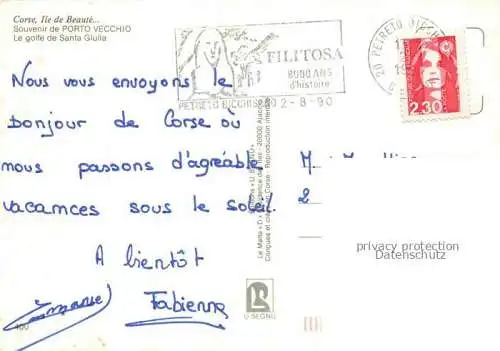 Corse, Ile de Beauté...
Souvenir de PORTO VECCHIO
Le golfe de Santa Giulia
FILITOSA
8000 ANS
d'histoire
PETRETO BICCHISANO 2-8-90
20 PETRETO BICCH
2,30
Nous vous envoyons le
bonjour de Corse où
nous passons d'agréable
vacances sous le soleil.
A bientôt
Fabienne
Le Marte « D »
U SEGNU
400
M
2
privacy protection
Datenschutz